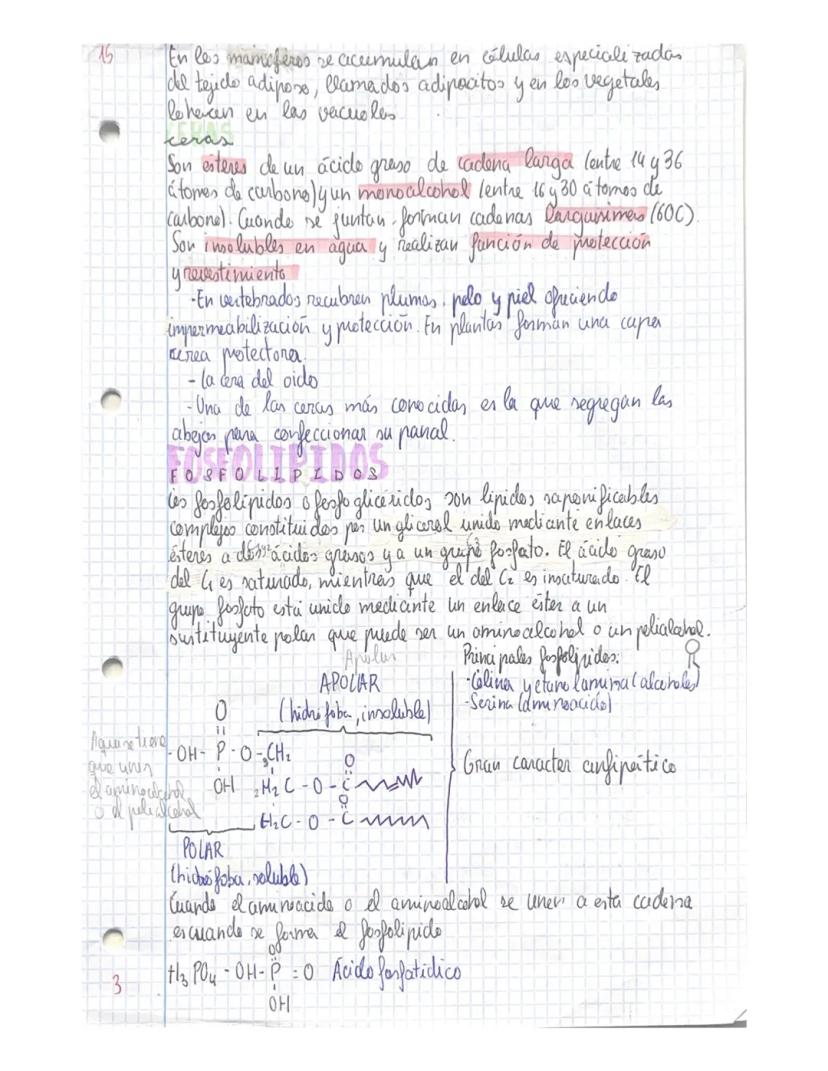 16
En los mamíferos se acumulan en células especializadas
del tejido adiposo, llamados adipocitos y en los vegetales
lo hacen en las vacuolas.
CERAS
ceras
Son ésteres de un ácido graso de cadena larga (entre 14 y 36
átomos de carbono) y un monoalcohol (entre 16 y 30 átomos de
carbono). Cuando se juntan forman cadenas larguísimas (60C).
Son insolubles en agua y realizan función de protección
y revestimiento
-En vertebrados recubren plumas, pelo y piel ofreciendo
impermeabilización y protección. En plantas forman una capa
cérea protectora.
- la cera del oído
-Una de las ceras más conocidas es la que segregan las
abejas para confeccionar su panal.
FOSFOLIPIDOS
FOSFOLIPIDOS
Los fosfolípidos o fosfoglicéridos son lípidos saponificables
complejos constituidos por un glicerol unido mediante enlaces
ésteres a dos ácidos grasos y a un grupo fosfato. El ácido graso
del C1 es saturado, mientras que el del C2 es insaturado. El
grupo fosfato está unido mediante un enlace éster a un
sustituyente polar que puede ser un aminoalcohol o un polialcohol.
Apolar
APOLAR
(hidrófoba, insoluble)
Principales fosfolípidos:
-Colina y etanolamina (alcoholes)
-Serina (aminoácido)
Gran caracter anfipático
Aquí se tiene
que unir
el aminoalcohol
o el polialcohol
O
-OH- P - O -3CH2
OH 2H2C - O - C
O
O
H2C - O - C
POLAR
(hidrófoba, soluble)
Cuando el aminoácido o el aminoalcohol se unen a esta cadena
es cuando se forma el fosfolípido
H3PO4 - OH- P = O Ácido fosfatídico
OH
3